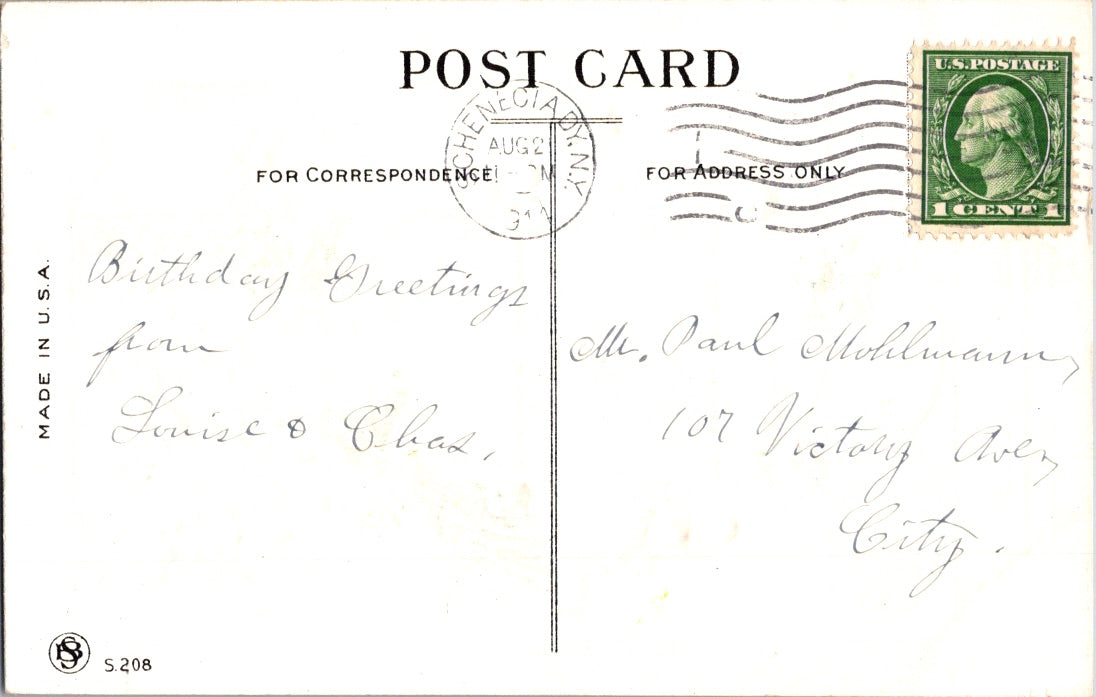 POST CARD
U.S. POSTAGE
1 CENT 1
SCHENECTADY, N.Y.
AUG 2
FOR CORRESPONDENCE
FOR ADDRESS ONLY
MADE IN U.S.A.
Birthday Greetings
from
Louise & Chas,
Mr. Paul Mohlmann,
107 Victory Ave,
City.
S.208